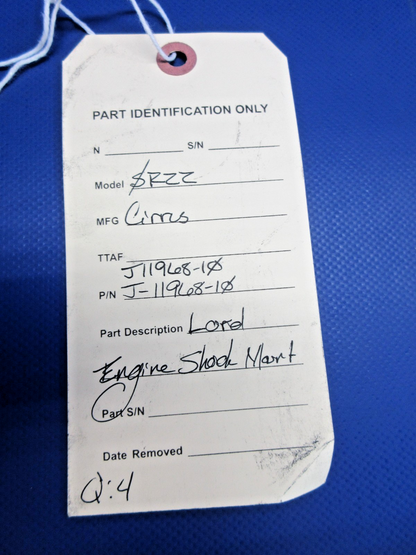 PART IDENTIFICATION ONLY
N S/N
Model SR22
MFG Cirrus
TTAF
J11968-1Ø
P/N J-11968-1Ø
Part Description Lord
Engine Shock Mount
Part S/N
Date Removed
Q:4